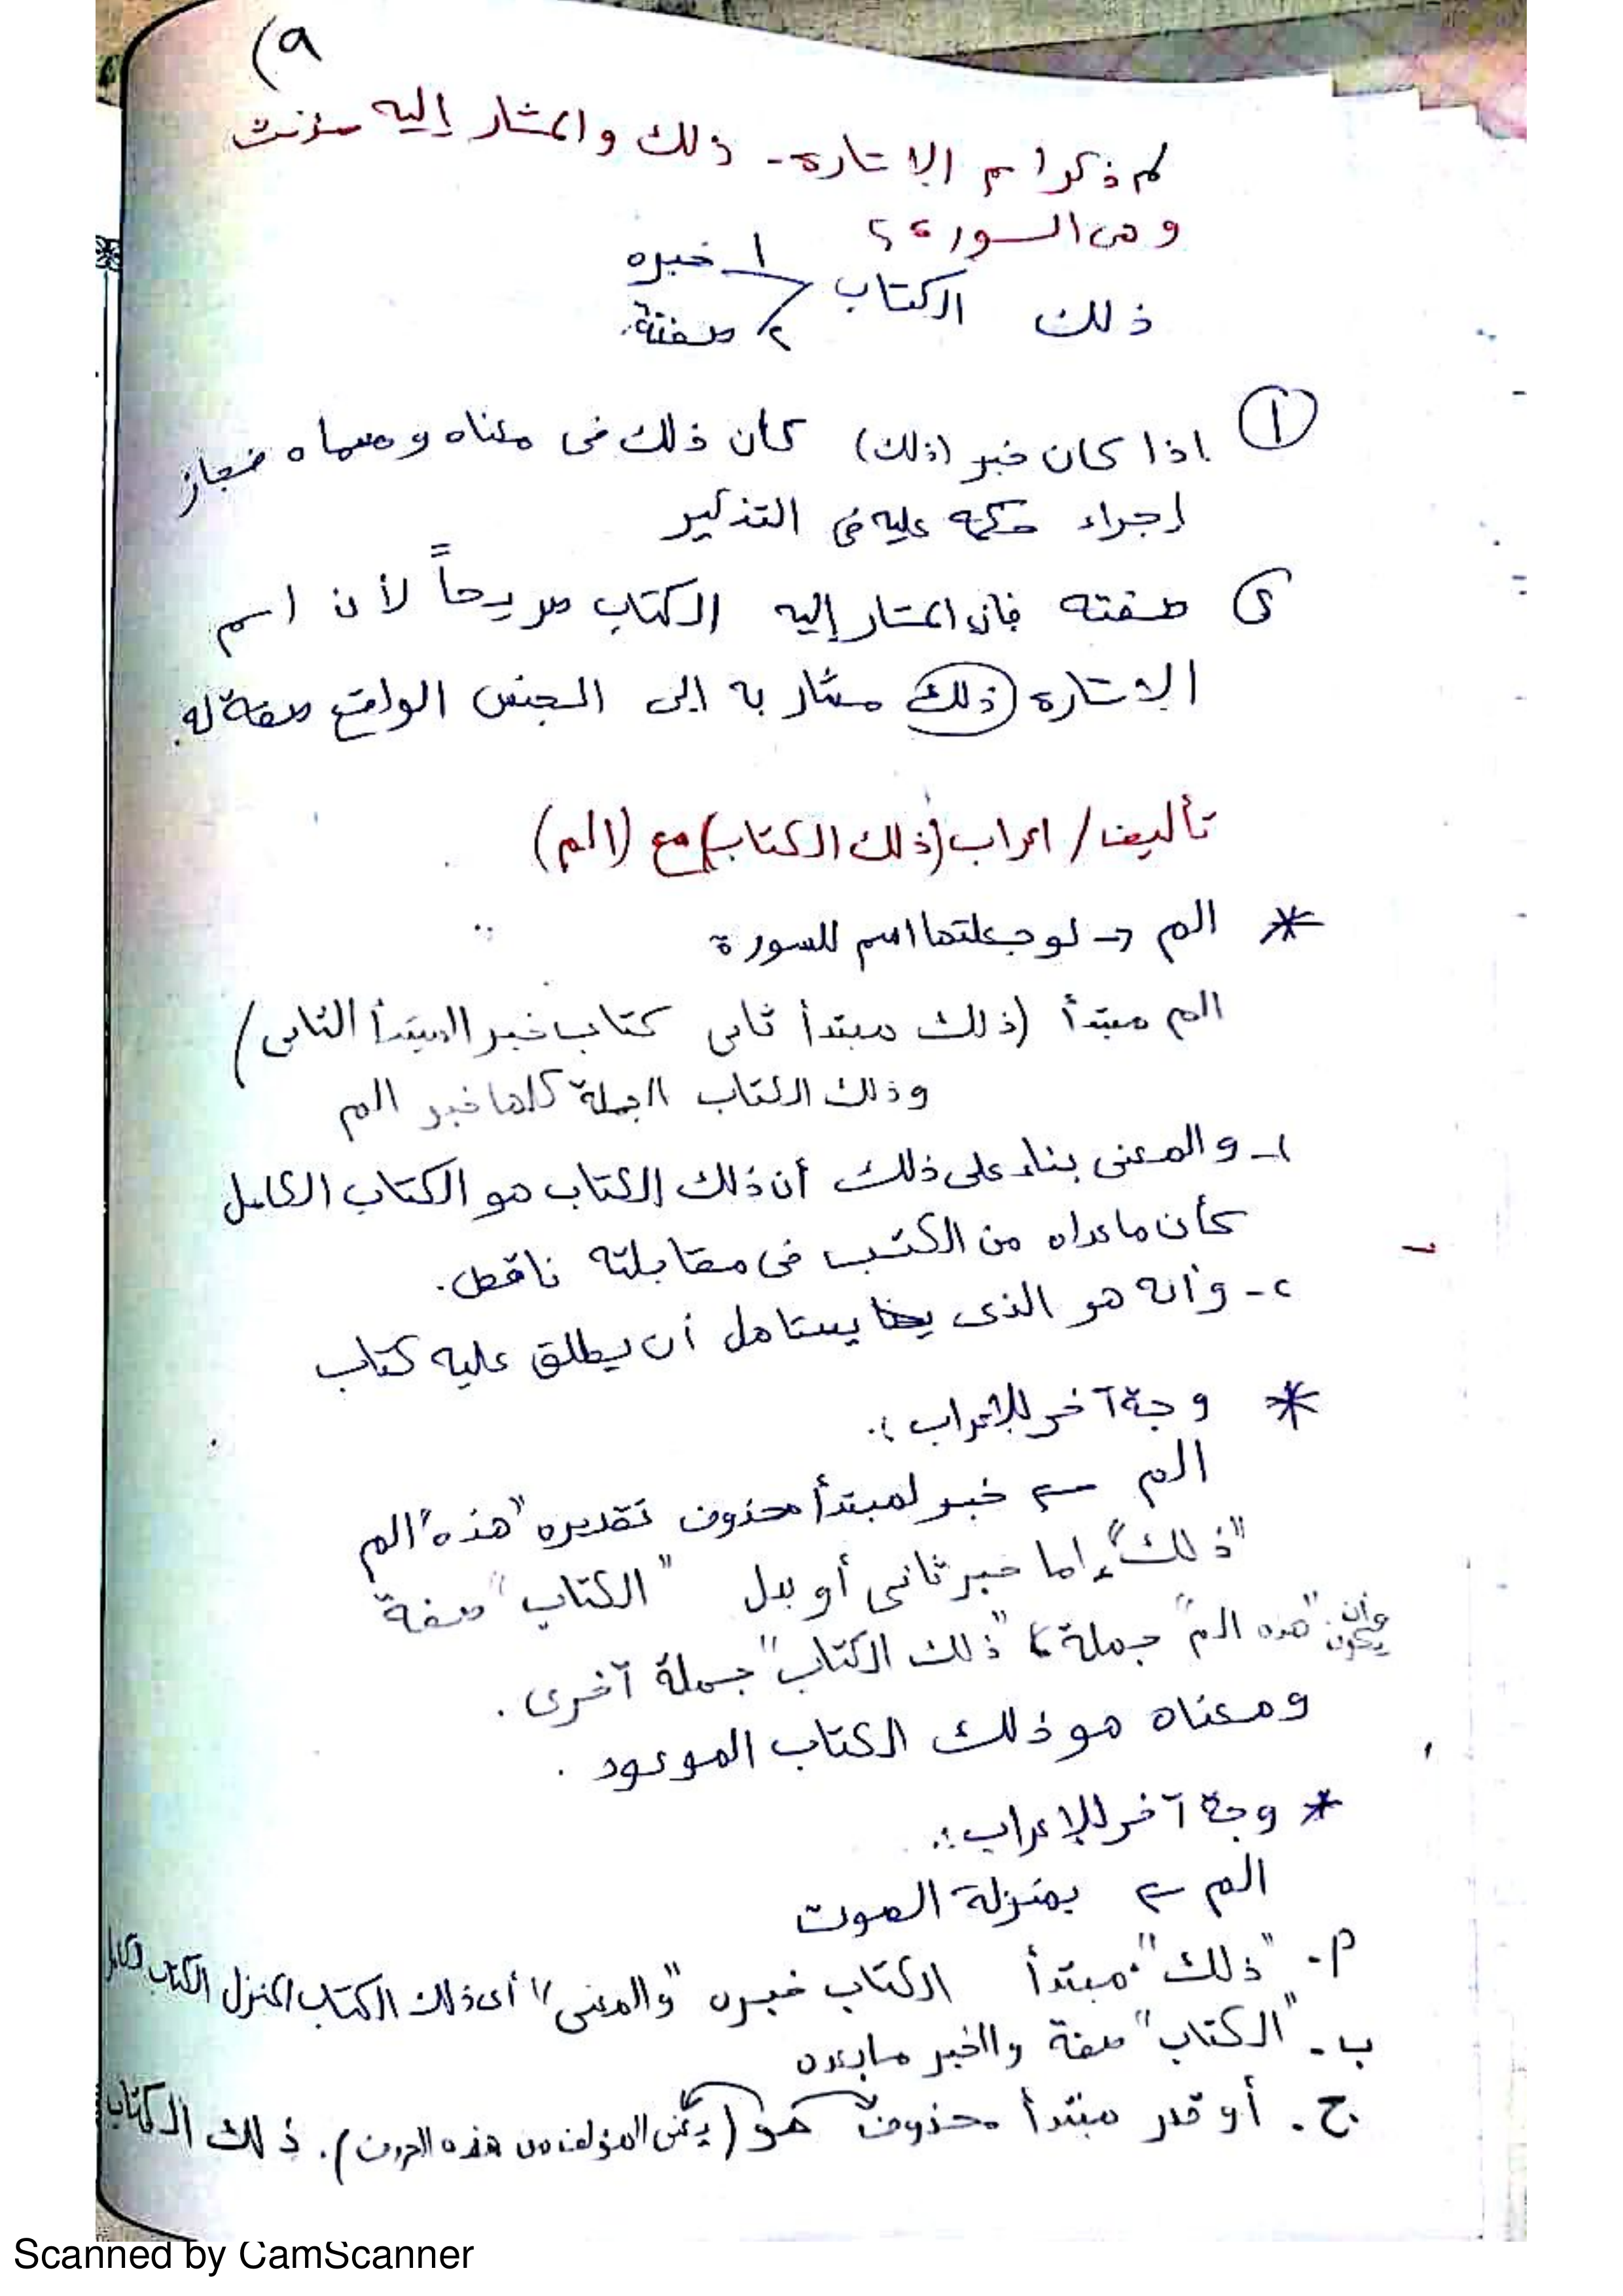 (٩
لم ذكر اسم الاشارة - ذلك والمشار إليه مؤنث
وهى السورة ؟
ذلك الكتاب ١ خبره
٢ صفته
١ اذا كان خبر (ذلك) كان ذلك فى معناه ومسماه فجاز
إجراء حكمه عليه فى التذكير
٢ صفته فإن المشار إليه الكتاب صريحاً لأن اسم
الإشارة (ذلك) مشار به إلى الجنس الواقع صفة له.
تأليف / اعراب (ذلك الكتاب) مع (الم)
* الم → لو جعلتها اسم للسورة
الم مبتدأ (ذلك مبتدأ ثانى كتاب خبر المبتدأ الثانى)
وذلك الكتاب الجملة كلها خبر الم
١- والمعنى بناء على ذلك أن ذلك الكتاب هو الكتاب الكامل
كأن ماعداه من الكتب فى مقابلته ناقص.
٢- وأنه هو الذى يستاهل أن يطلق عليه كتاب
* وجة آخر للإعراب :.
الم ← خبر لمبتدأ محذوف تقديره "هذه" الم
"ذلك" إما خبر ثانى أو بدل "الكتاب" صفة
وأن يكون "هذه الم" جملة، "ذلك الكتاب" جملة آخرى.
ومعناه هو ذلك الكتاب الموعود.
* وجة آخر للإعراب :.
الم ← بمنزلة الصوت
أ. "ذلك" مبتدأ الكتاب خبره "والمعنى" أى ذلك الكتاب المنزل الكتاب الكامل
ب. "الكتاب" صفة والخبر مابعده
ج. أو قدر مبتدأ محذوف هو (يعنى المؤلف من هذه الحروف). ذلك الكتاب
Scanned by CamScanner